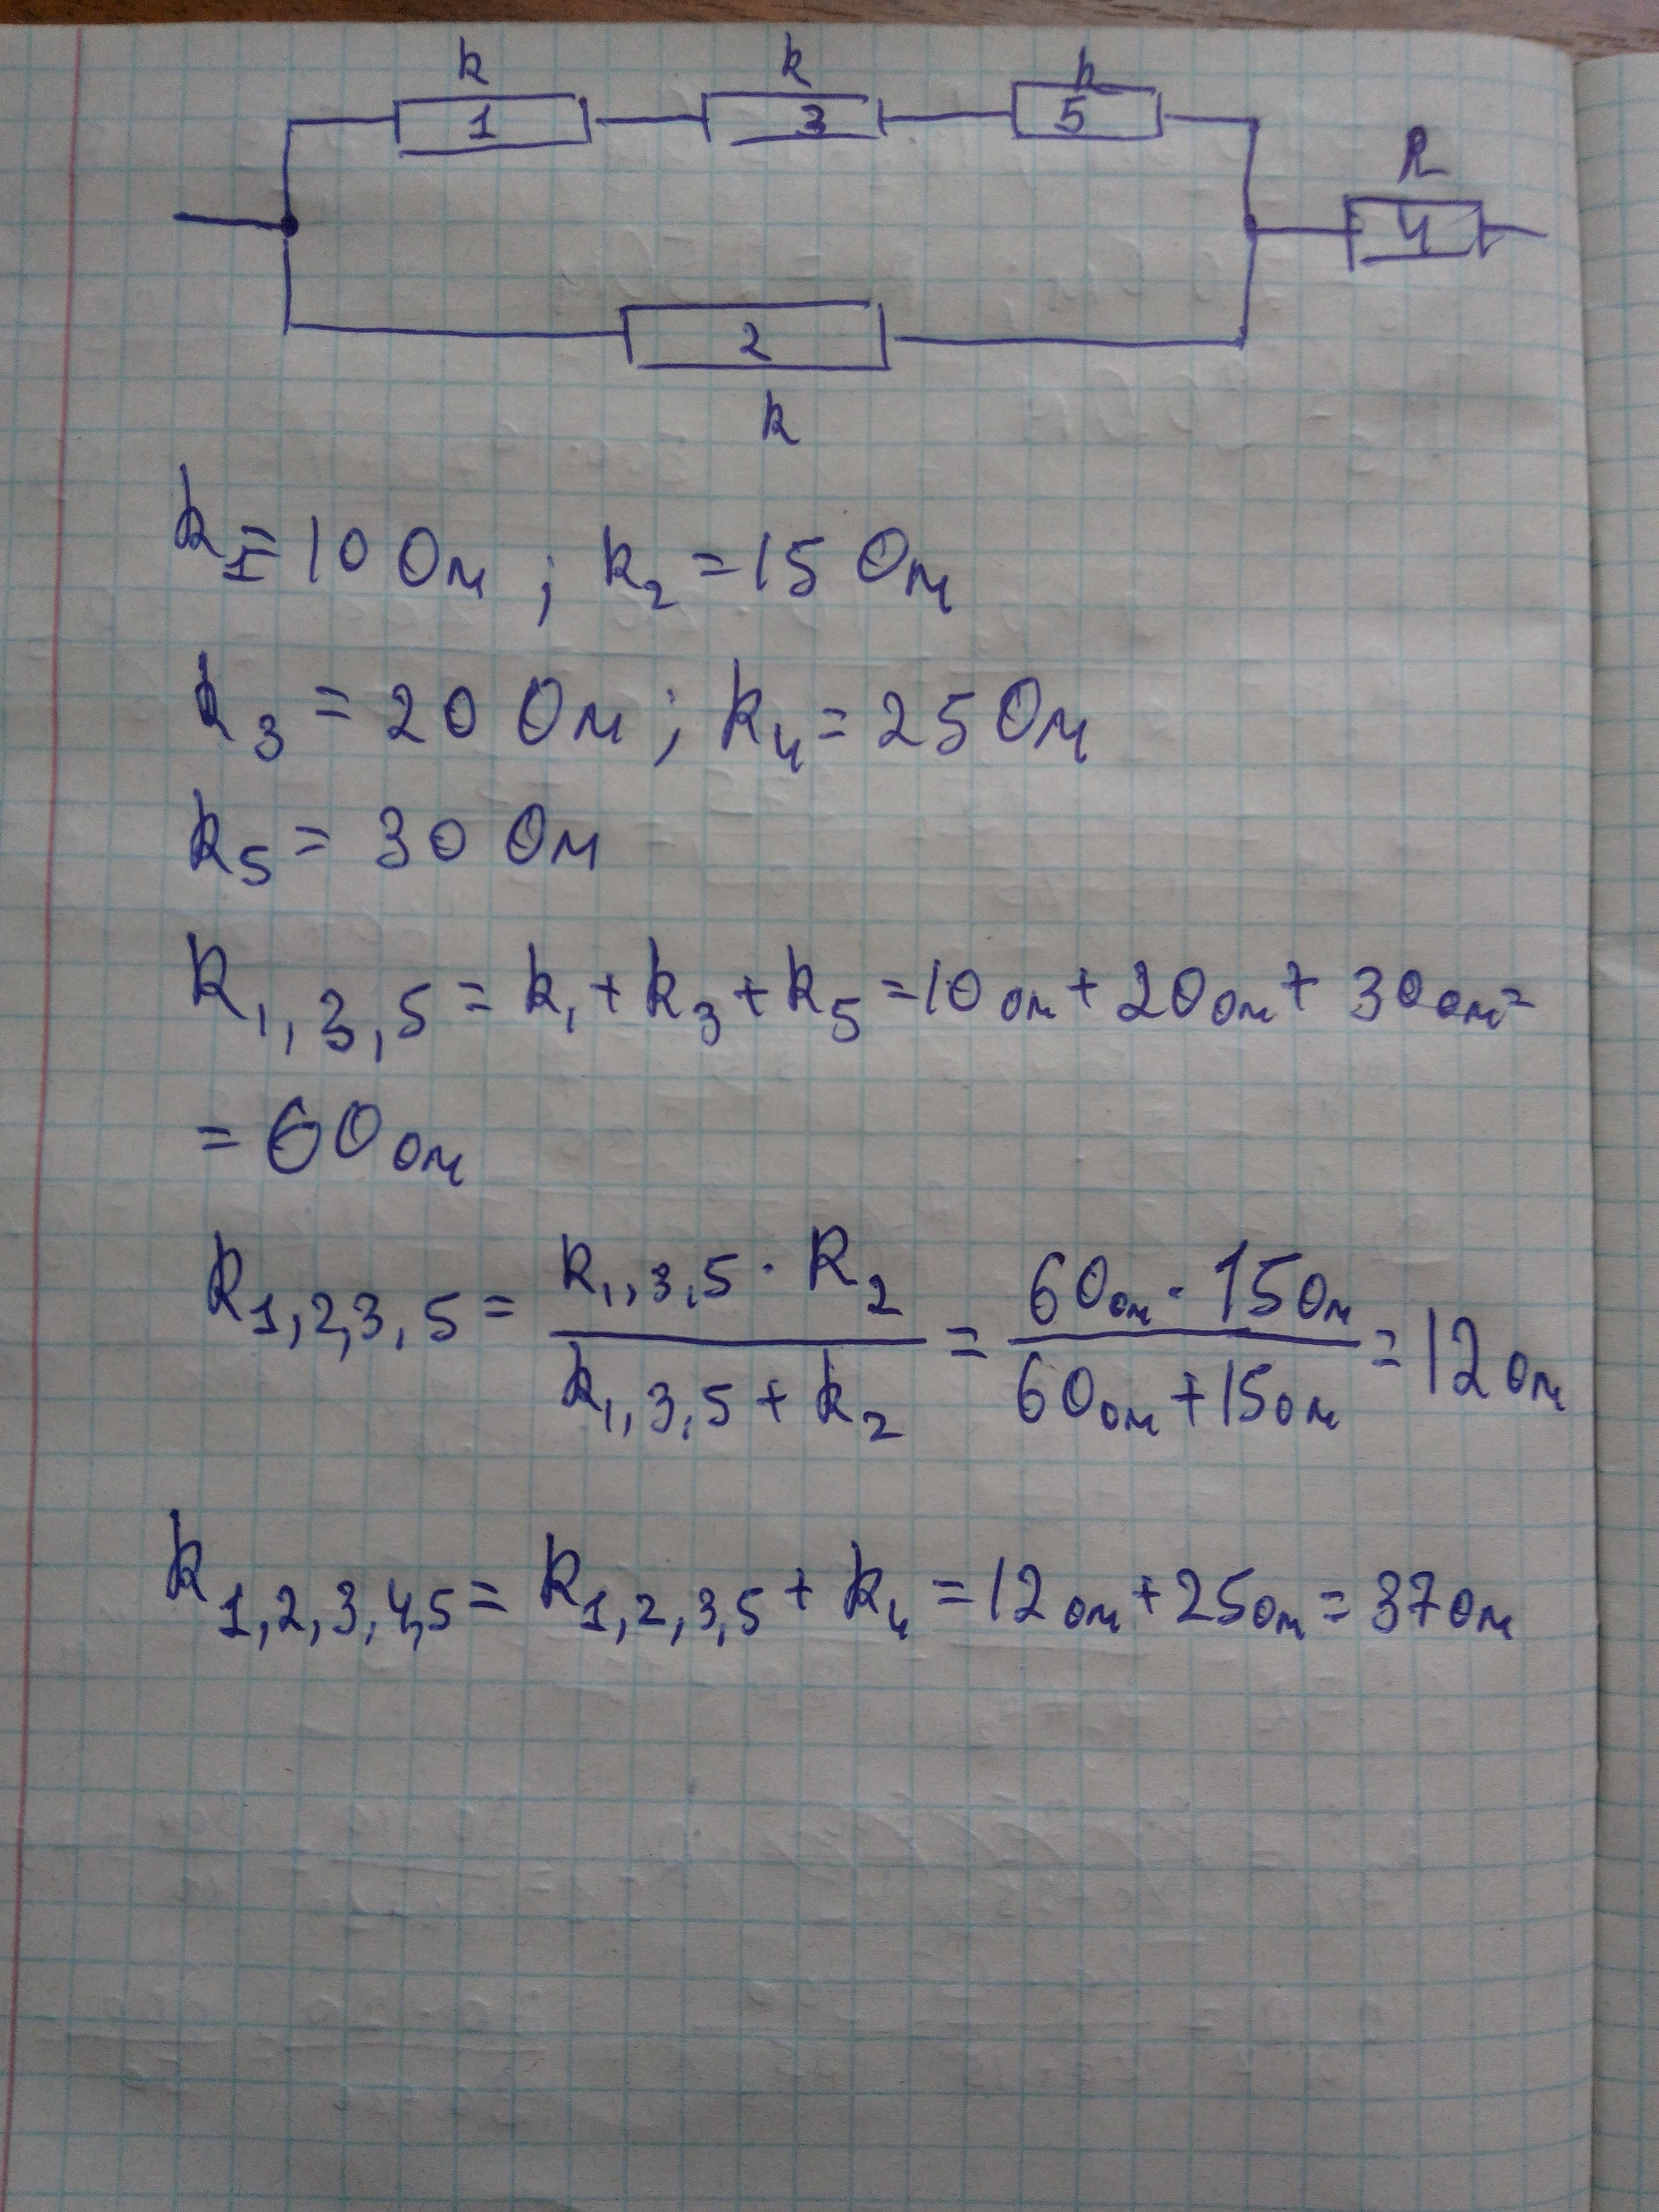 R R R
1 3 5
R
4
2
R
R₁ = 10 Ом ; R₂ = 15 Ом
R₃ = 20 Ом ; R₄ = 25 Ом
R₅ = 30 Ом
R₁,₃,₅ = R₁ + R₃ + R₅ = 10 Ом + 20 Ом + 30 Ом =
= 60 Ом
R₁,₂,₃,₅ = (R₁,₃,₅ · R₂) / (R₁,₃,₅ + R₂) = (60 Ом · 15 Ом) / (60 Ом + 15 Ом) = 12 Ом
R₁,₂,₃,₄,₅ = R₁,₂,₃,₅ + R₄ = 12 Ом + 25 Ом = 37 Ом